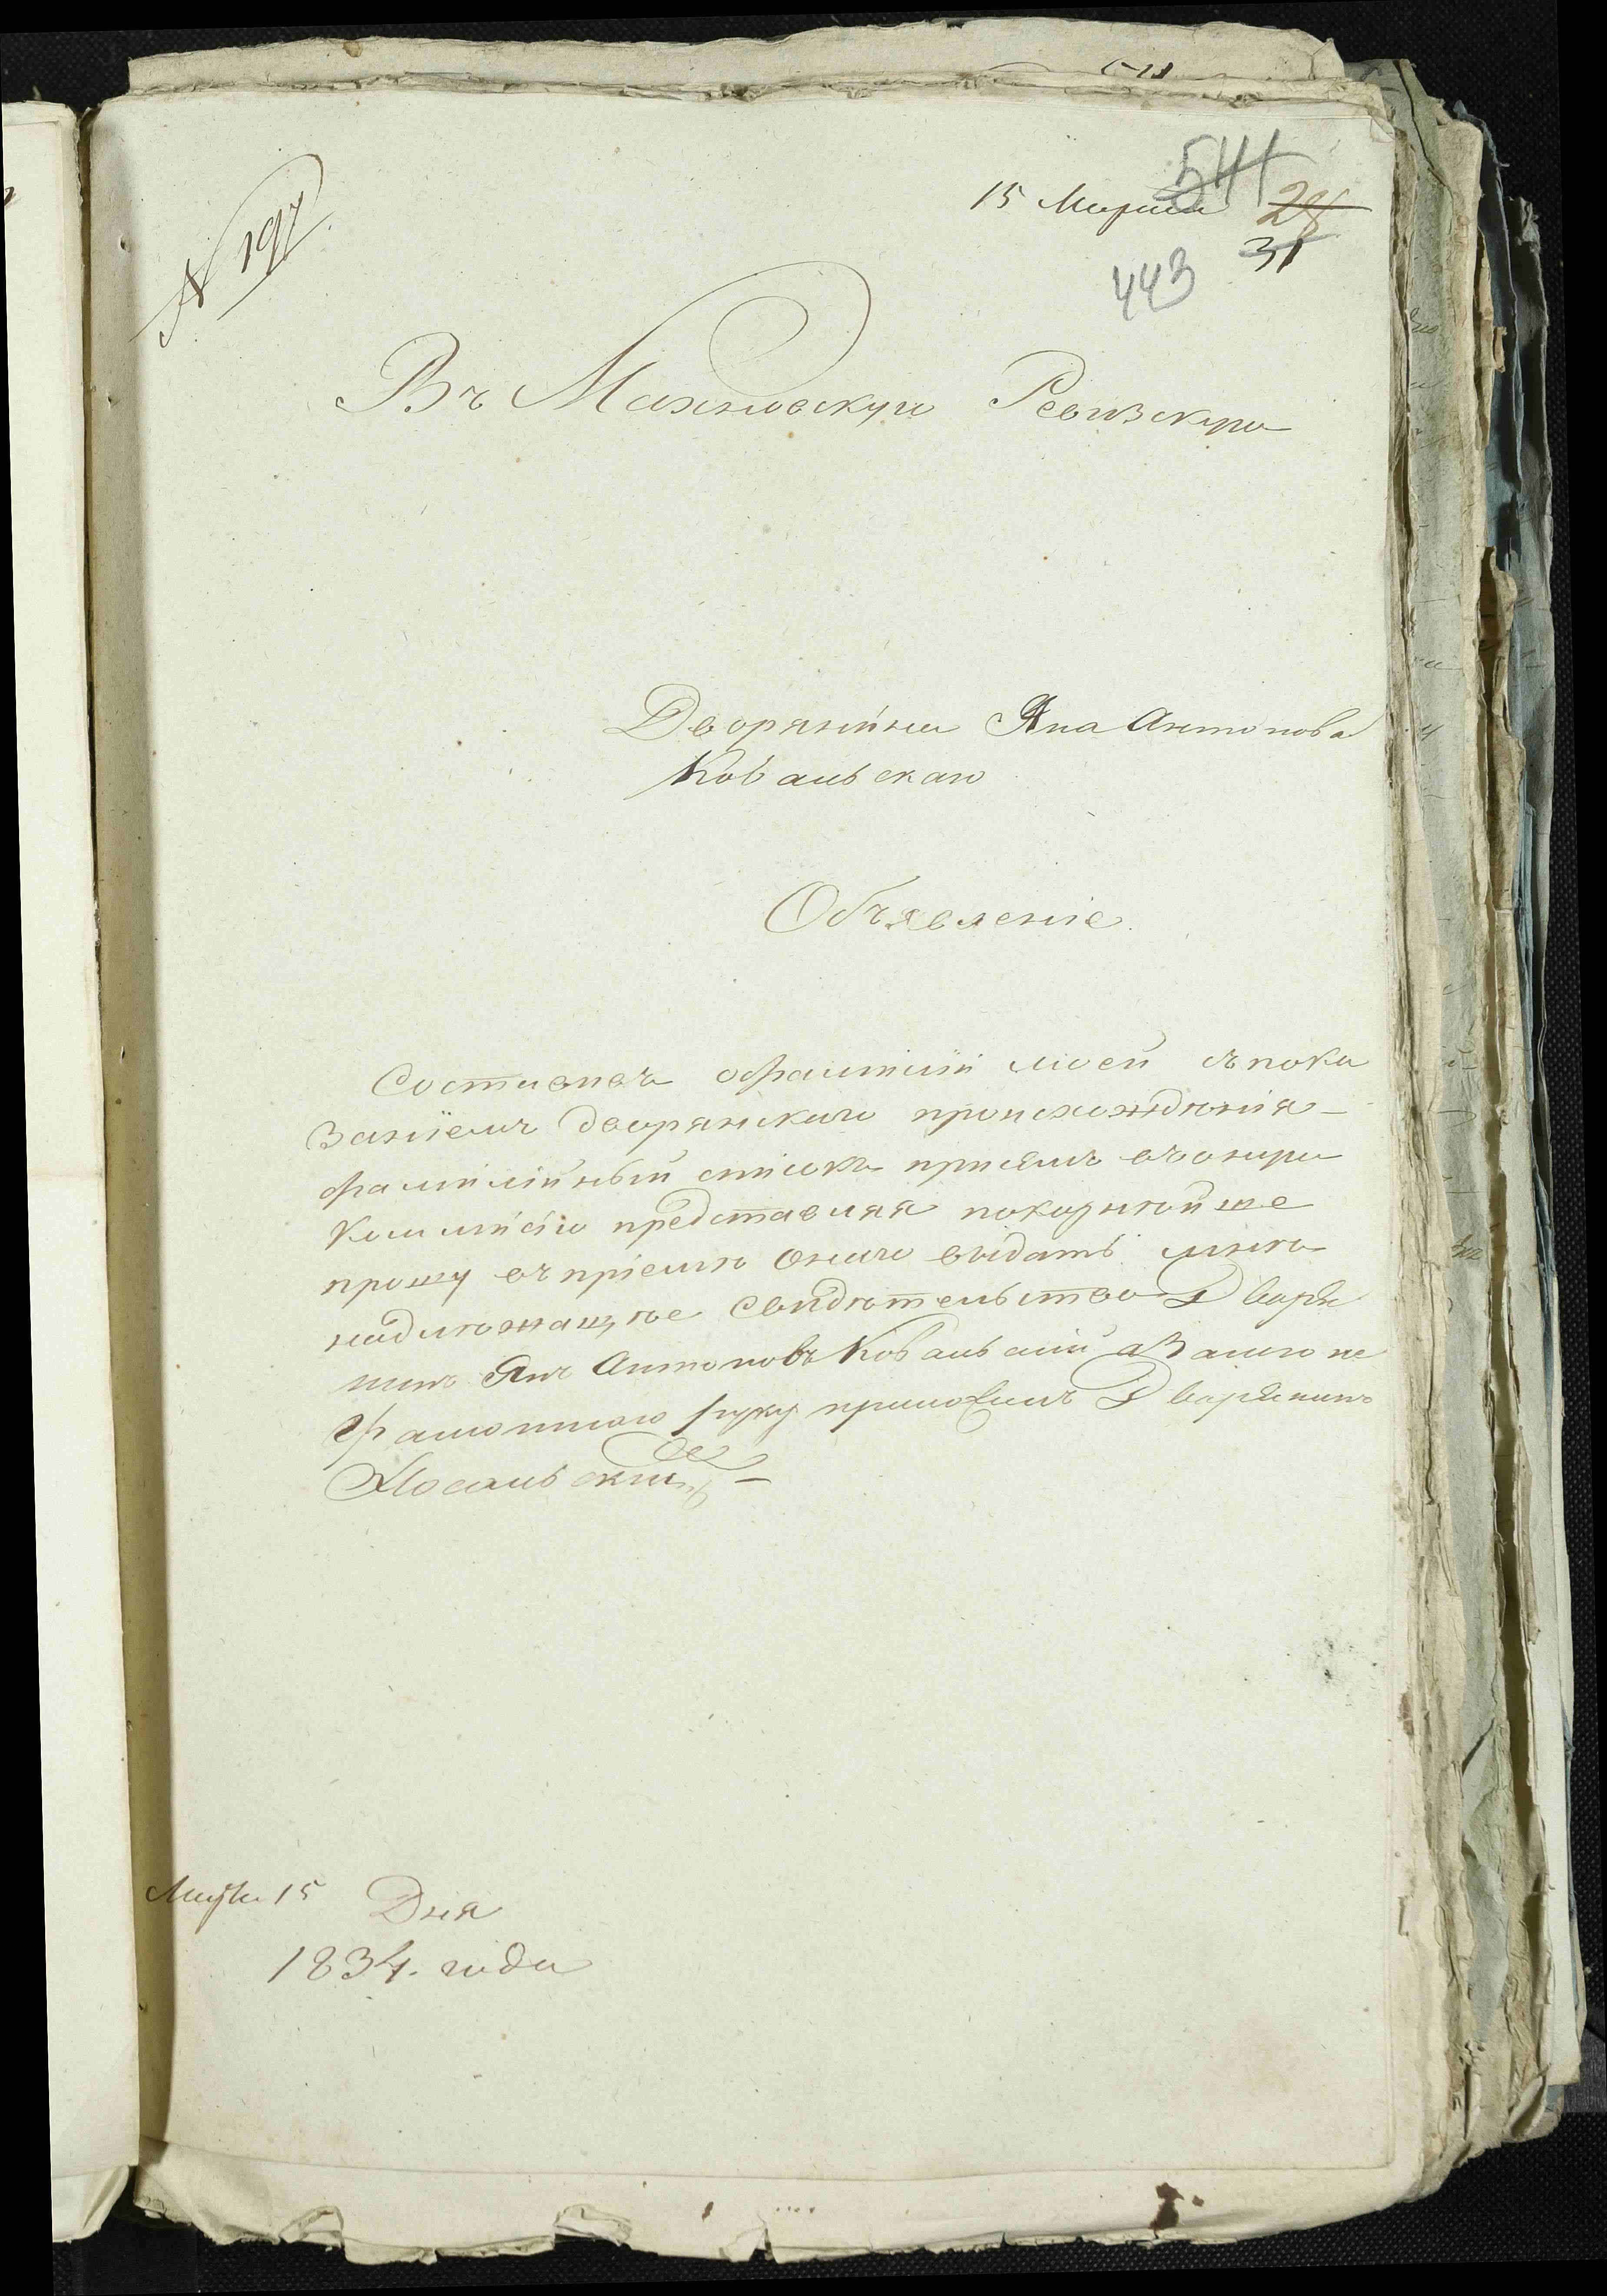 N 197
541
15 Марта 28
31
443
Въ Махновскую Ревизскую
Дворянина Яна Антонова
Ковальскаго
Объявленіе.
Составивъ офамиліи моей съпока
заніемъ дворянскаго происхожденія
фамилійный списокъ присемъ въоную
Коммисію представляя покорнѣйше
прошу въпріемѣ онаго выдать мнѣ
надлѣжащѣе свидѣтельство Дворя
нинъ Янъ Антоновъ Ковальскій аЗамѣ не
грамотнаго руку приложилъ Дворянинъ
Марта 15 Дня
1834. года